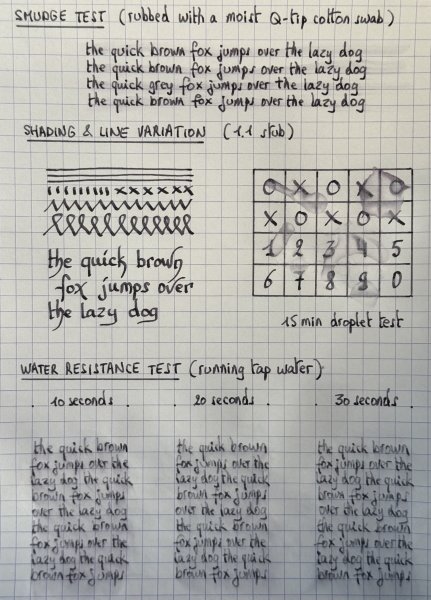 SMUDGE TEST (rubbed with a moist Q-tip cotton swab)
the quick brown fox jumps over the lazy dog
the quick brown fox jumps over the lazy dog
the quick grey fox jumps over the lazy dog
the quick brown fox jumps over the lazy dog
SHADING & LINE VARIATION (1.1 stub)
the quick brown
fox jumps over
the lazy dog
O X O X O
X O X O X
1 2 3 4 5
6 7 8 9 0
15 min droplet test
WATER RESISTANCE TEST (running tap water)
10 seconds
the quick brown
fox jumps over the
lazy dog the quick
brown fox jumps
over the lazy dog
the quick brown
fox jumps over the
lazy dog the quick
brown fox jumps
20 seconds
the quick brown
fox jumps over the
lazy dog the quick
brown fox jumps
over the lazy dog
the quick brown
fox jumps over the
lazy dog the quick
brown fox jumps
30 seconds
the quick brown
fox jumps over the
lazy dog the quick
brown fox jumps
over the lazy dog
the quick brown
fox jumps over the
lazy dog the quick
brown fox jumps